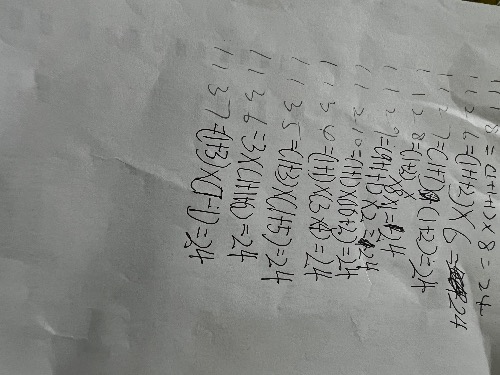 1 1 1 8 =(1+1+1)×8=24
1 1 2 6 =(1+1+2)×6=24
1 1 2 7 =(1+7)×(1+2)=24
1 1 2 8 =(1+2)×8×1=24
1 1 2 9 = ×2=24
1 1 2 10 =(1+1)×(10+2)=24
1 1 3 4 =(1+1)×(3×4)=24
1 1 3 5 =(1+3)×(1+5)=24
1 1 3 6 =3×(1+1+6)=24
1 1 3 7 =(1+3)×(7-1)=24